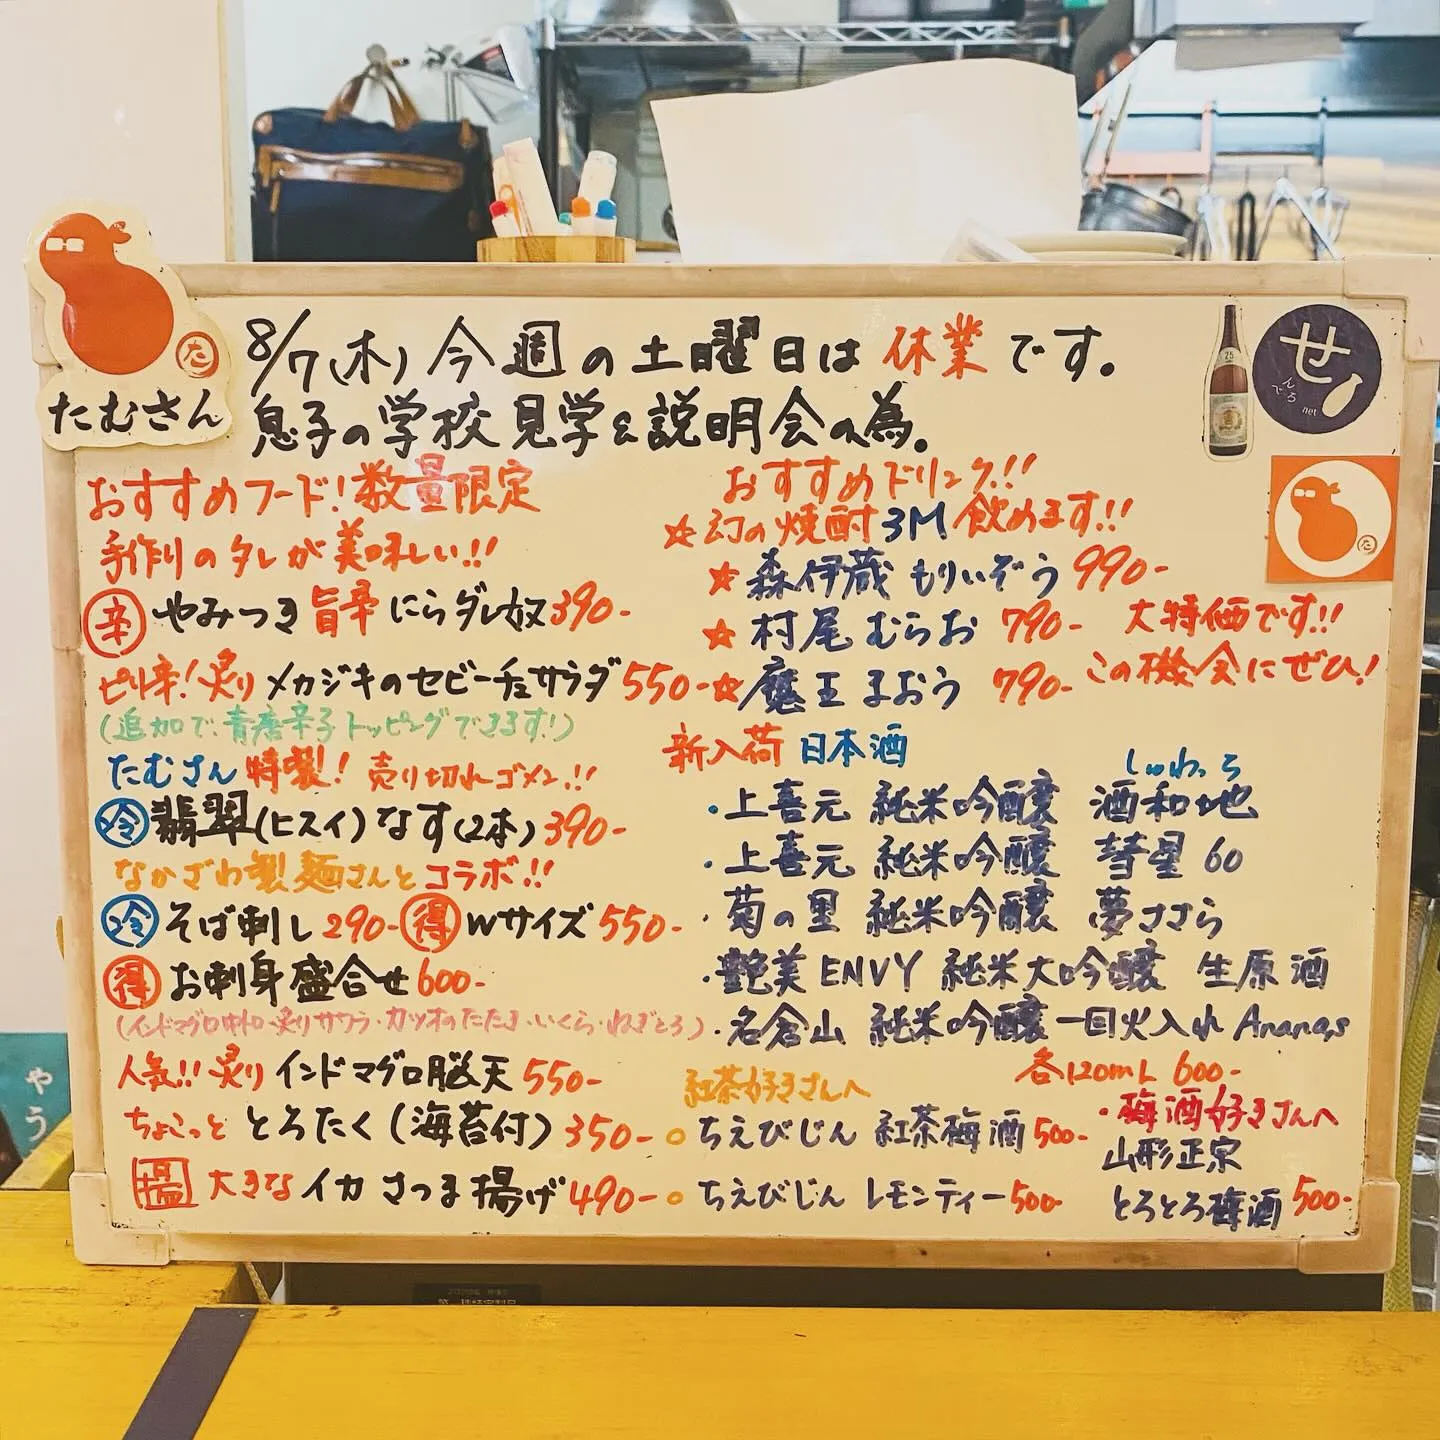 8/7(木) 今週の土曜日は休業です。
息子の学校見学&説明会の為。
たむさん
せ
んでろ
net
25
おすすめフード!数量限定
手作りのタレが美味しい!!
辛 やみつき旨辛にらダレ奴 390-
ピリ辛!炙りメカジキのセビーチェサラダ 550-
(追加で、青唐辛子トッピングできます!)
たむさん特製! 売り切れゴメン!!
冷 翡翠(ヒスイ)なす(2本) 390-
なかざわ製麺さんとコラボ!!
冷 そば刺し 290- 得 Wサイズ 550-
得 お刺身盛合せ 600-
(インドマグロ中トロ・炙りサワラ・カツオのたたき・いくら・ねぎとろ)
人気!!炙りインドマグロ脳天 550-
ちょこっと とろたく(海苔付) 350-
揚 大きなイカさつま揚げ 490-
おすすめドリンク!!
☆幻の焼酎3M飲めます!!
☆森伊蔵 もりいぞう 990-
☆村尾 むらお 790-
☆魔王 まおう 790-
大特価です!!
この機会にぜひ!
新入荷 日本酒
しゅわっち
・上喜元 純米吟醸 酒和地
・上喜元 純米吟醸 彗星60
・菊の里 純米吟醸 夢ささら
・艶美 ENVY 純米大吟醸 生原酒
・名倉山 純米吟醸 一回火入れ Ananas
各120mL 600-
紅茶好きさんへ
○ちえびじん 紅茶梅酒 500-
○ちえびじん レモンティー 500-
・梅酒好きさんへ
山形正宗
とろとろ梅酒 500-
やう